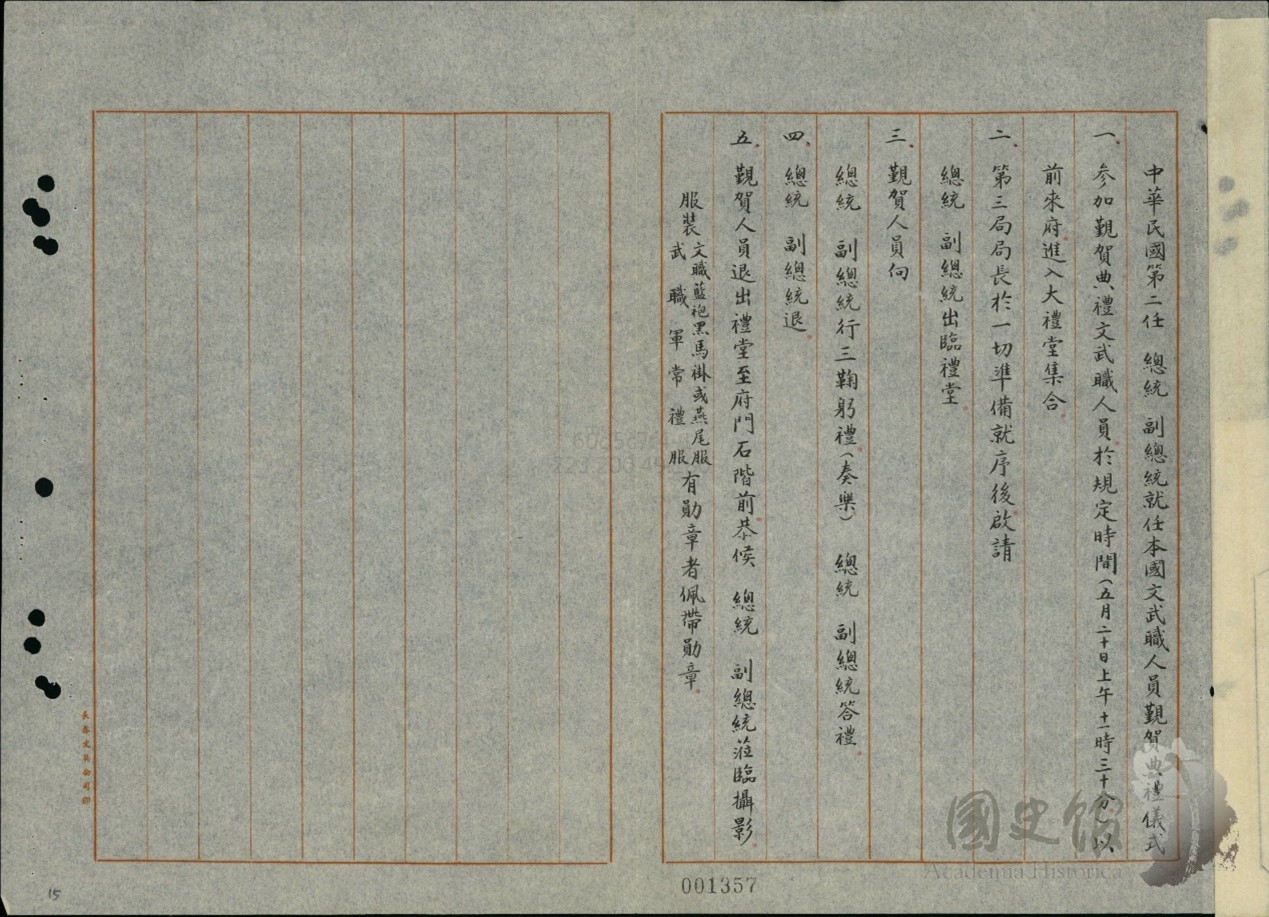 中華民國第二任　總統　副總統就任本國文武職人員覲賀典禮儀式
一、參加覲賀典禮文武職人員於規定時間（五月二十日上午十一時三十分）以
前來府進入大禮堂集合。
二、第三局局長於一切準備就序後啟請
總統　副總統出臨禮堂。
三、覲賀人員向
總統　副總統行三鞠躬禮（奏樂）　總統　副總統答禮。
四、總統　副總統退。
五、覲賀人員退出禮堂至府門石階前恭候　總統　副總統蒞臨攝影。
服裝 文職藍袍黑馬褂或燕尾服 武職軍常禮服 有勛章者佩帶勛章。
001357
15
國史館
Academia Historica